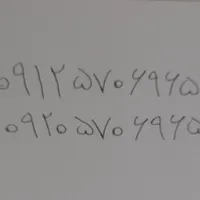 ۰۹۱۲۵۷۰۶۹۶۵
۰۹۲۰۵۷۰۶۹۶۵